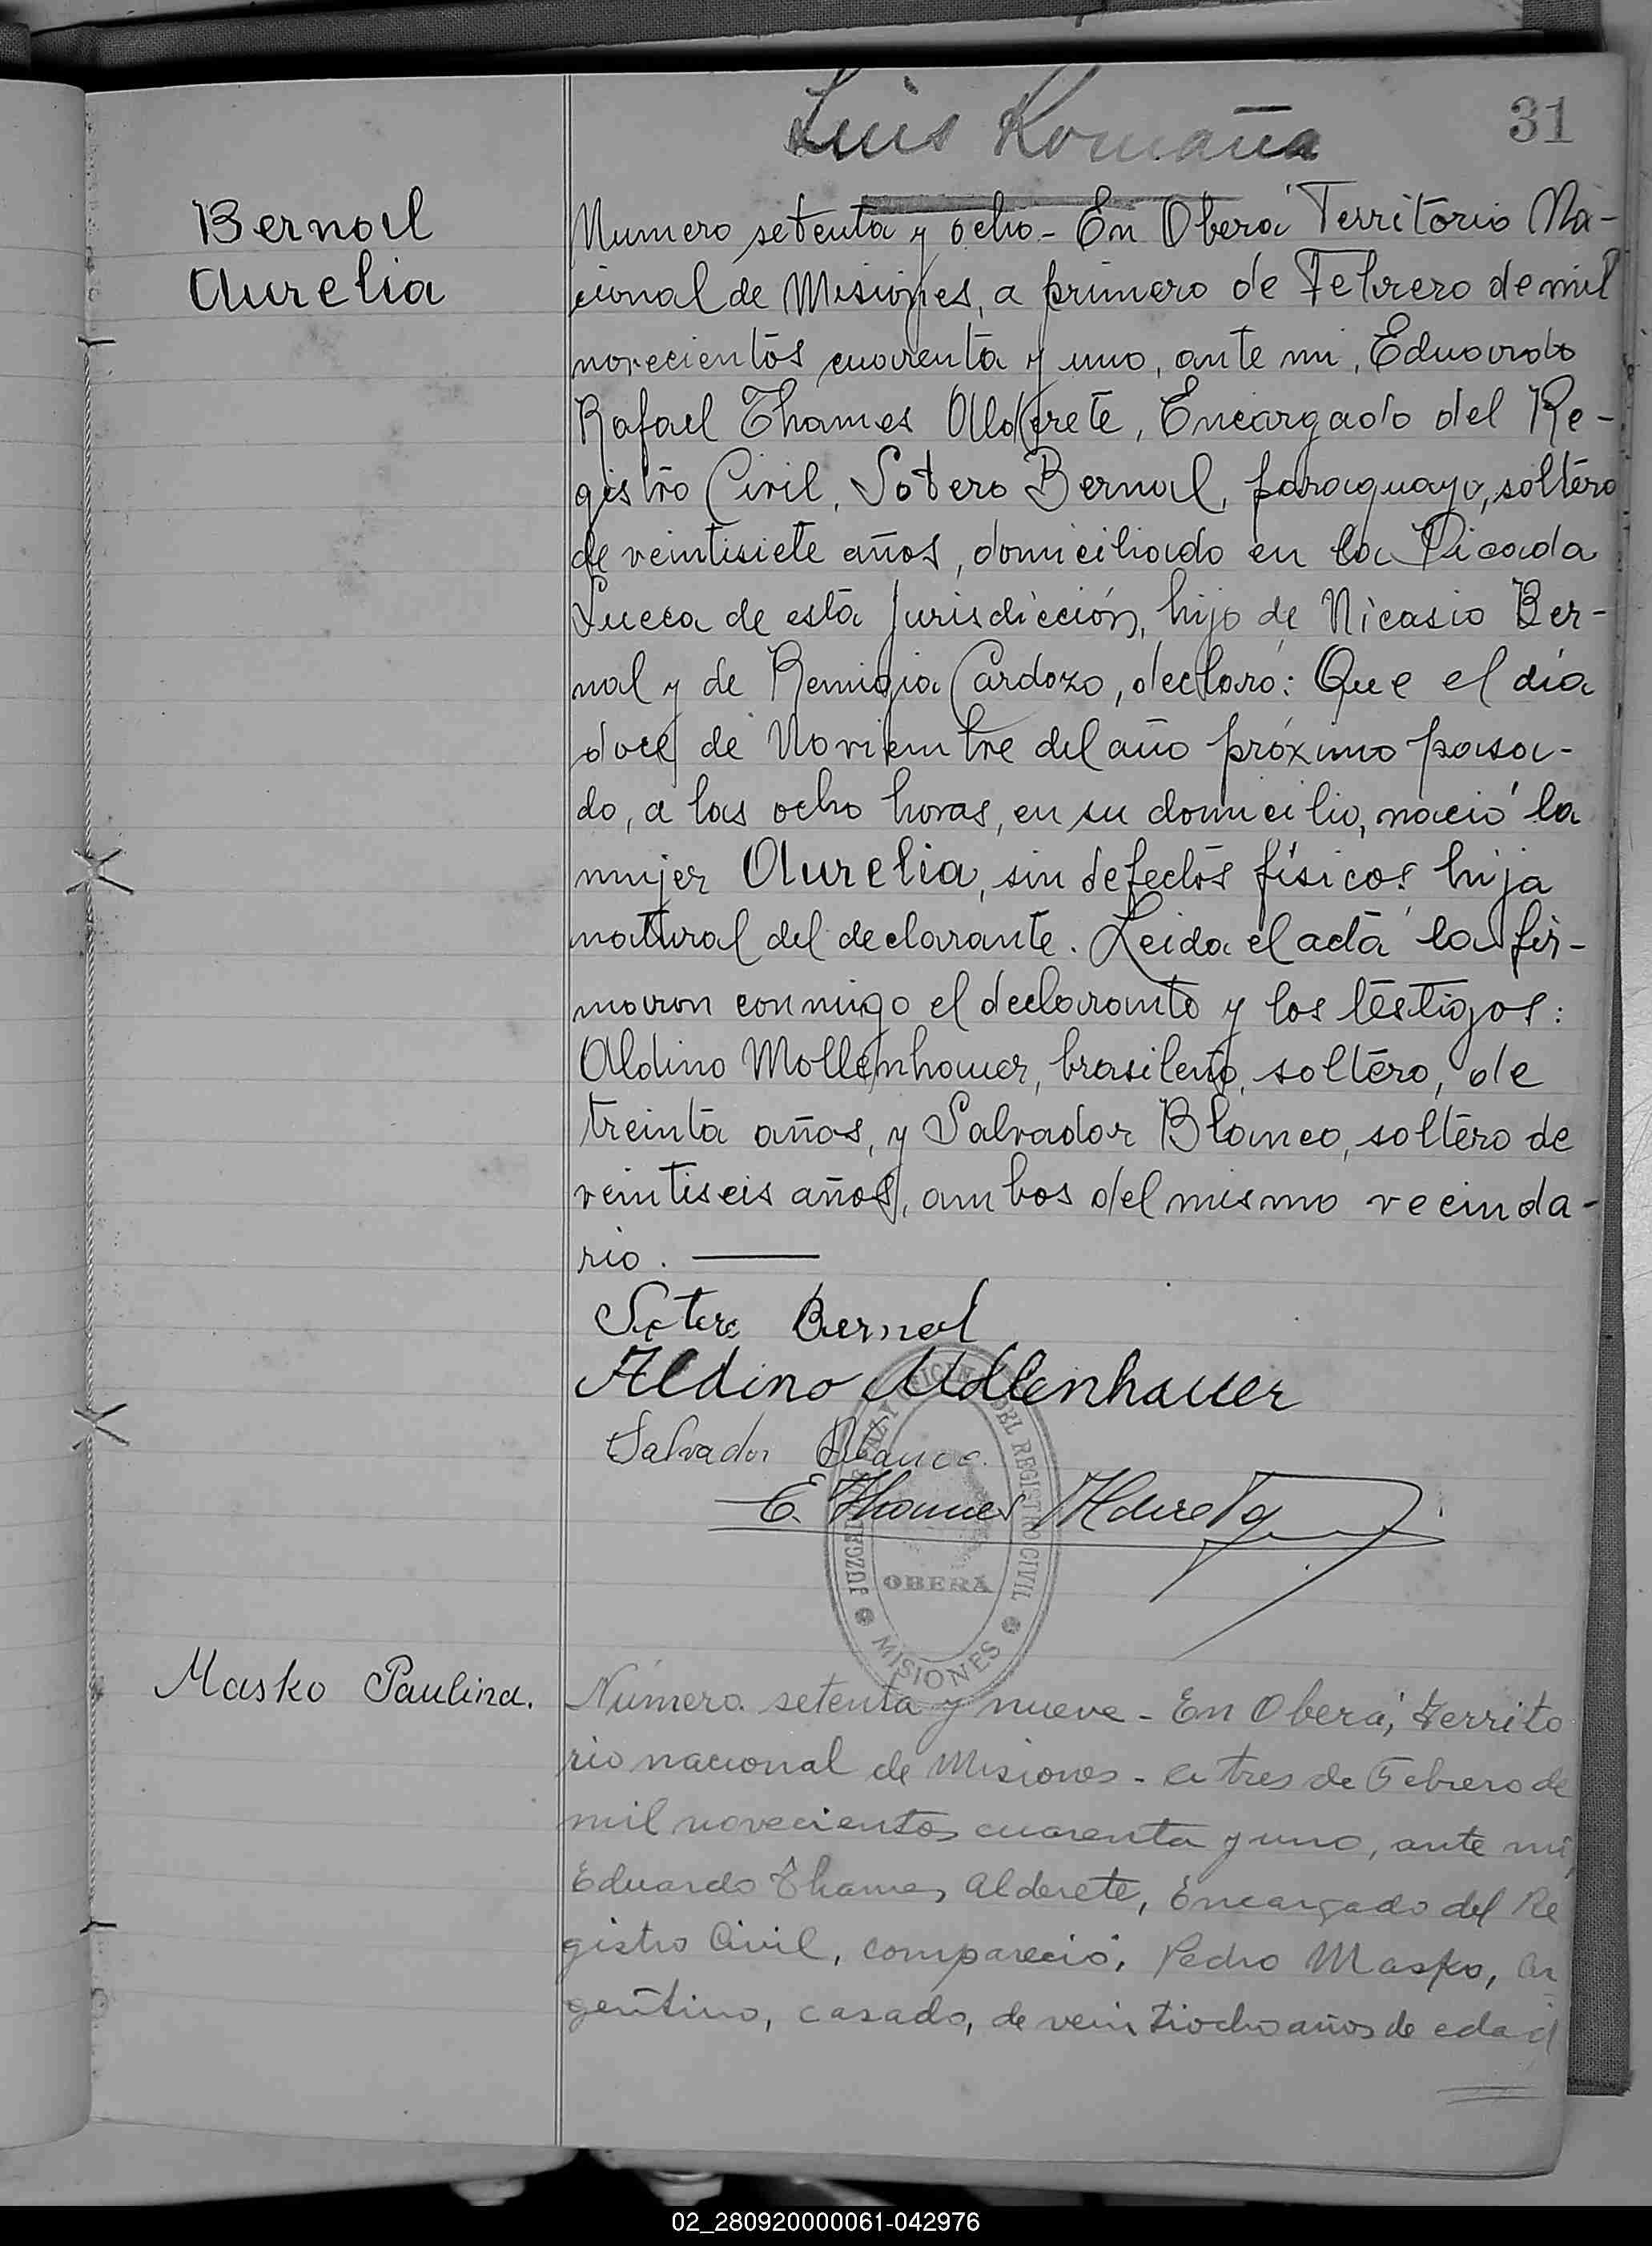 Luis Romaña
31
Bernal
Aurelia
Numero setenta y ocho - En Oberá Territorio Na-
cional de Misiones, a primero de Febrero de mil
novecientos cuarenta y uno, ante mi, Eduardo
Rafael Thames Alderete, Encargado del Re-
gistro Civil, Sotero Bernal, paraguayo, soltero
de veintisiete años, domiciliado en la Picada
Lucca de esta Jurisdicción, hijo de Nicasio Ber-
nal y de Remigia Cardozo, declaró: Que el día
doce de Noviembre del año próximo pasa-
do, a las ocho horas, en su domicilio, nació la
mujer Aurelia, sin defectos físicos, hija
natural del declarante. Leida el acta la fir-
maron conmigo el declarante y los testigos:
Aldino Mollenhauer, brasileño, soltero, de
treinta años, y Salvador Blanco, soltero de
veintiseis años, ambos del mismo vecinda-
rio.
Sotero Bernal
Aldino Mollenhauer
Salvador Blanco.
E. Thames Alderete
JUZGADO DE PAZ Y OFICINA DEL REGISTRO CIVIL
OBERÁ
MISIONES
Masko Paulina.
Número setenta y nueve - En Oberá, territo
rio nacional de Misiones - a tres de Febrero de
mil novecientos cuarenta y uno, ante mi,
Eduardo Thames Alderete, Encargado del Re
gistro Civil, compareció, Pedro Masko, ar
gentino, casado, de veintiocho años de edad
02_280920000061-042976